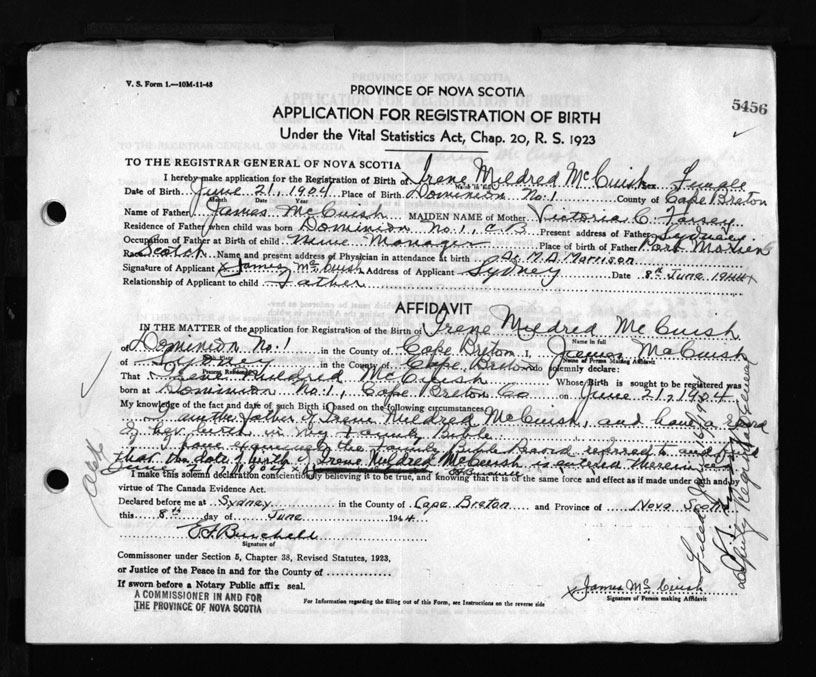 V. S. Form 1.—10M-11-43
PROVINCE OF NOVA SCOTIA
5456
APPLICATION FOR REGISTRATION OF BIRTH
Under the Vital Statistics Act, Chap. 20, R. S. 1923
TO THE REGISTRAR GENERAL OF NOVA SCOTIA
I hereby make application for the Registration of Birth of Irene Mildred McCuish Sex Female
Date of Birth June 21, 1904 Place of Birth Dominion No. 1 County of Cape Breton
Month Date Year
Name of Father James McCuish MAIDEN NAME of Mother Victoria C.
Residence of Father when child was born Dominion No. 1, C.B. Present address of Father Sydney
Occupation of Father at Birth of child Mine Manager Place of Birth of Father Port Morien
Race Scotch Name and present address of Physician in attendance at birth Dr. M. D. Morrison
Signature of Applicant x James McCuish Address of Applicant Sydney Date 8th June 1944
Relationship of Applicant to child Father
AFFIDAVIT
IN THE MATTER of the application for Registration of the Birth of Irene Mildred McCuish
Name in full
of Dominion No. 1 in the County of Cape Breton I, James McCuish
Name of Person Making Affidavit
of Sydney in the County of Cape Breton do solemnly declare:
That Irene Mildred McCuish Whose Birth is sought to be registered was
born at Dominion No. 1, Cape Breton Co on June 21, 1904
My knowledge of the fact and date of such Birth is based on the following circumstances
I am the father of Irene Mildred McCuish, and have a record
of her birth in my Family Bible
I have the Family Bible Record referred to and find
that the date of birth of Irene Mildred McCuish is entered therein as
June 21, 1904
I make this solemn declaration conscientiously believing it to be true, and knowing that it is of the same force and effect as if made under oath and by
virtue of The Canada Evidence Act.
Declared before me at Sydney in the County of Cape Breton and Province of Nova Scotia
this 8th day of June 1944
Signature of
Commissioner under Section 5, Chapter 38, Revised Statutes, 1923,
or Justice of the Peace in and for the County of
If sworn before a Notary Public affix seal.
A COMMISSIONER IN AND FOR
THE PROVINCE OF NOVA SCOTIA
For Information regarding the filling out of this Form, see Instructions on the reverse side
x James McCuish
Signature of Person making Affidavit
Deputy Registrar General